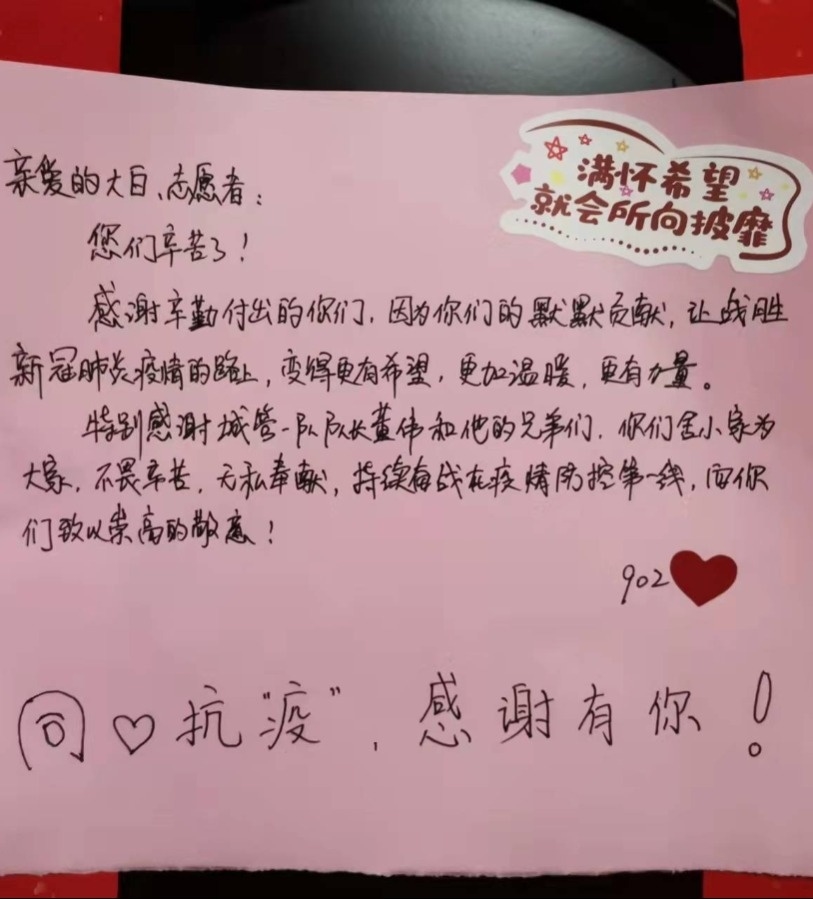 满怀希望
就会所向披靡
亲爱的大白、志愿者:
您们辛苦了!
感谢辛勤付出的你们,因为你们的默默贡献,让战胜
新冠肺炎疫情的路上,变得更有希望,更加温暖,更有力量。
特别感谢城管一队队长董伟和他的兄弟们,你们舍小家为
大家,不畏辛苦,无私奉献,持续奋战在疫情防控第一线,向你
们致以崇高的敬意!
902
同♡抗“疫”,感谢有你!